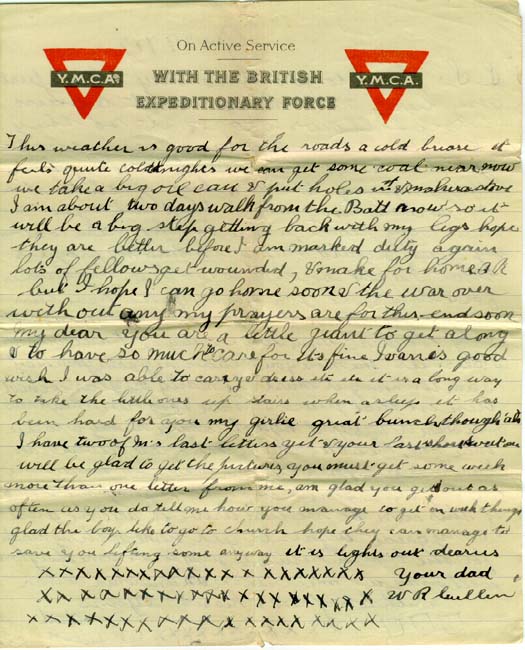 On Active Service
Y.M.C.A. Y.M.C.A.
WITH THE BRITISH
EXPEDITIONARY FORCE
This weather is good for the roads a cold it
feels quite cold nights we can get some coal near now
we take a big oil can & put holes in it & make a stove
I am about two days walk from the Batt now so it
will be a big step getting back with my legs hope
they are better before I am marked duty again
lots of fellows get wounded, & make for home
but I hope I can go home soon & the war over
without any my prayers are for this end soon
my dear you are a little giant to get along
& to have so much to care for its fine is good
wish I was able to carry & dress it is a long way
to take the little ones up stairs when asleep it has
been hard for you my girlie great bunch though
I have two of last letters yet & your last short
will be glad to get the pictures, you must get some week
more than one letter from me, am glad you get out as
often as you do tell me how you manage to get on with things
glad the boys like to go to church hope they can manage to
save you lifting some anyway it is lights out
xxxxxxxxxxxxxxxxxxxxxx Your dad
xxxxxxxxxxxxxxxxxxxxxx W R Cullen
xxxxxxxxxxxxxxxxxxxxxx